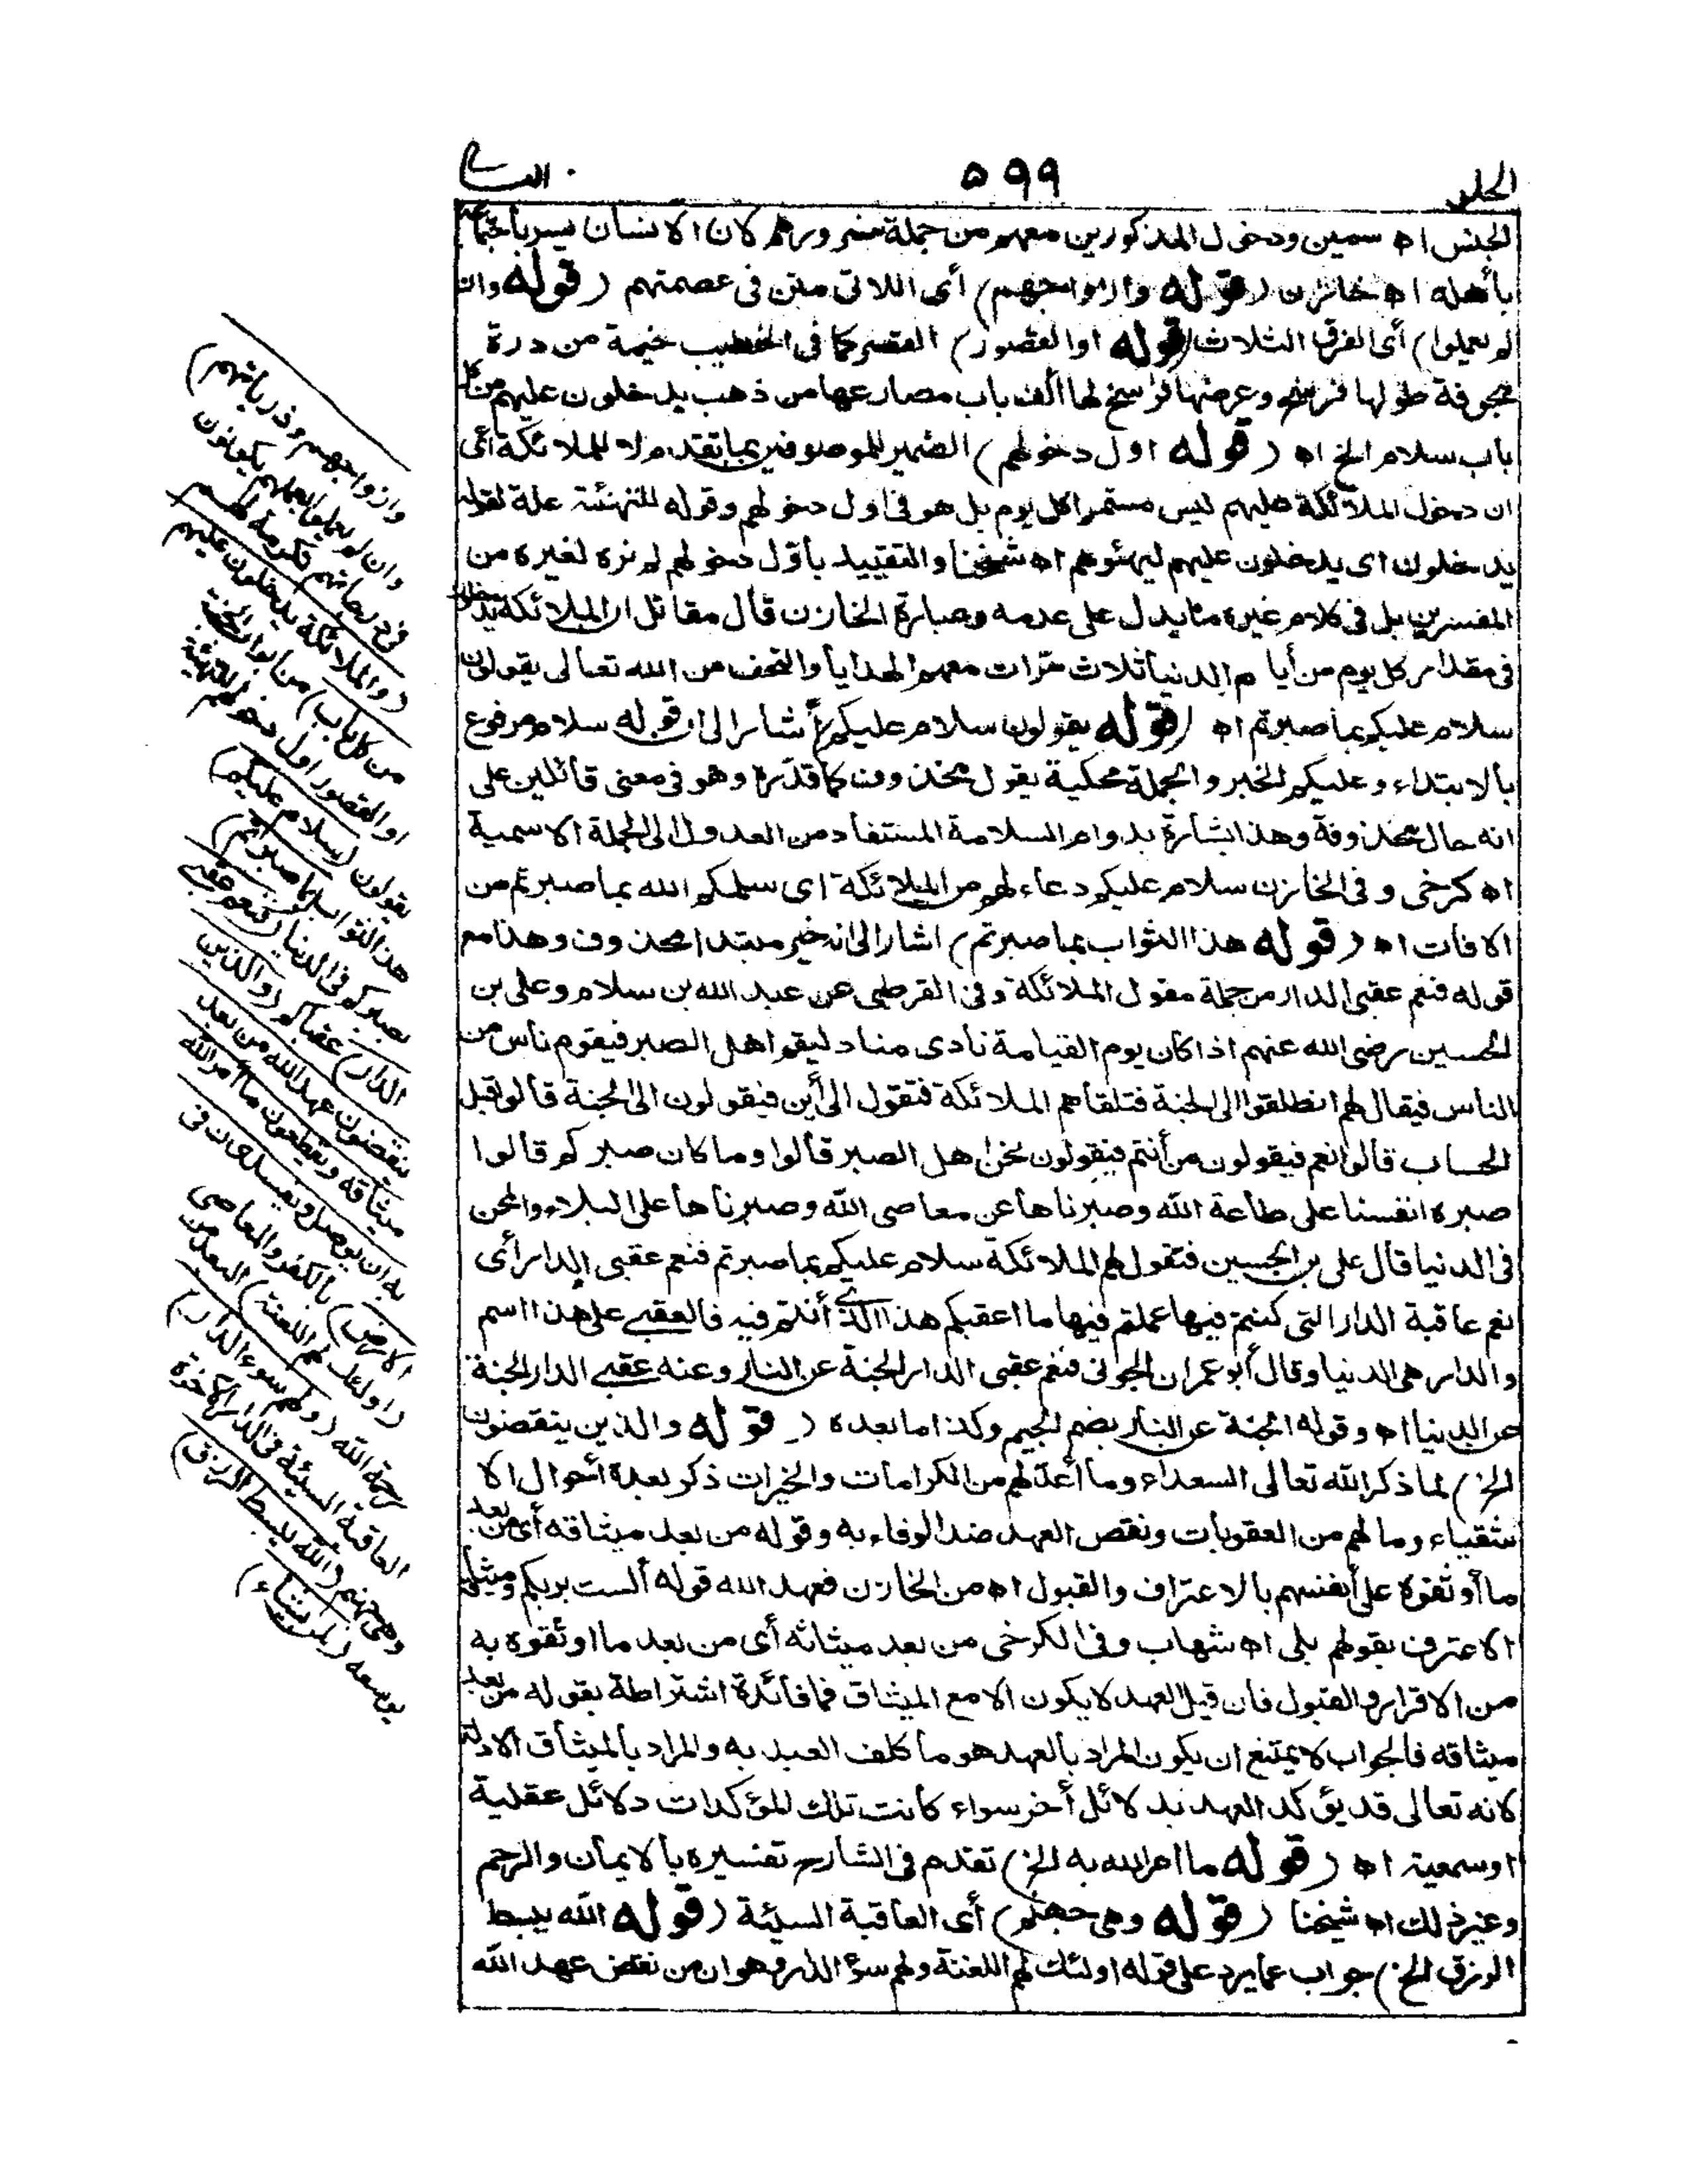 الجلد
۵۹۹
الثانى
الجنس اه سمين ودخول المذكورين معهم من جملة سرورهم لان الانسان يسر باجتماعه
بأهله اه خازن (قوله وازواجهم) أى اللاتى متن فى عصمتهم (قوله وان
لم يعملوا) أى الفرق الثلاث (قوله او القصور) القصر كما فى الخطيب خيمة من درة
مجوفة طولها فرسخ وعرضها فرسخ لها ألف باب مصارعها من ذهب يدخلون عليهم من كل
باب سلام الخ اه (قوله اول دخولهم) الضمير للموصوفين بما تقدم لا للملائكة أى
ان دخول الملائكة عليهم ليس مستمرا كل يوم بل هو فى اول دخولهم وقوله للتهنئة علة لقوله
يدخلون اى يدخلون عليهم ليهنئوهم اه شيخنا والتقييد بأول دخولهم لم نره لغيره من
المفسرين بل فى كلام غيره ما يدل على عدمه وعبارة الخازن قال مقاتل ان الملائكة يدخلون
فى مقدار كل يوم من أيا م الدنيا ثلاث مرات معهم الهدايا والتحف من الله تعالى يقولون
سلام عليكم بما صبرتم اه (قوله يقولون سلام عليكم) أشار الى ان قوله سلام مرفوع
بالابتداء وعليكم الخبر والجملة محكية بقول محذوف كما قدّره وهو فى معنى قائلين على
انه حال محذوفة وهذا بشارة بدوام السلامة المستفاد من العدول الى الجملة الاسمية
اه كرخى وفى الخازن سلام عليكم دعاء لهم من الملائكة اى سلمكم الله بما صبرتم من
الافات اه (قوله هذا الثواب بما صبرتم) اشار الى انه خبر مبتدا محذوف وهذا مع
قوله فنعم عقبى الدار من جملة مقول الملائكة وفى القرطبى عن عبد الله بن سلام وعلى بن
الحسين رضى الله عنهم اذا كان يوم القيامة نادى مناد ليقم اهل الصبر فيقوم ناس من
الناس فيقال لهم انطلقوا الى الجنة فتلقاهم الملائكة فتقول الى أين فيقولون الى الجنة قالوا قبل
الحساب قالوا نعم فيقولون من أنتم فيقولون نحن اهل الصبر قالوا وما كان صبركم قالوا
صبرنا انفسنا على طاعة الله وصبرناها عن معاصى الله وصبرناها على البلاء والمحن
فى الدنيا قال على بن الحسين فتقول لهم الملائكة سلام عليكم بما صبرتم فنعم عقبى الدار أى
نعم عاقبة الدار التى كنتم فيها عملتم فيها ما اعقبكم هذا الذى أنتم فيه فالعقبى على هذا اسم
والدار هى الدنيا وقال أبو عمران الجونى فنعم عقبى الدار الجنة عن النار وعنه عقبى الدار الجنة
عن الدنيا اه وقوله الجنة عن النار بضم الجيم وكذا ما بعده (قوله والذين ينقضون
الخ) لما ذكر الله تعالى السعداء وما أعدّ لهم من الكرامات والخيرات ذكر بعده أحوال الا
شقياء وما لهم من العقوبات ونقض العهد ضد الوفاء به وقوله من بعد ميثاقه أى من بعد
ما أوثقوه على أنفسهم بالاعتراف والقبول اه من الخازن فعهد الله قوله ألست بربكم وميثاقه
الاعترف بقولهم بلى اه شهاب وفى الكرخى من بعد ميثاثه أى من بعد ما اوثقوه به
من الاقرار والقبول فان قيل العهد لا يكون الا مع الميثاق فما فائدة اشتراطه بقوله من بعد
ميثاقه فالجواب لا يمتنع ان يكون المراد بالعهد هو ما كلف العبد به والمراد بالميثاق الادلة
لانه تعالى قد يؤكد العهد بدلائل أخر سواء كانت تلك المؤكدات دلائل عقلية
او سمعية اه (قوله ما امر الله به الخ) تقدم فى الشارح تفسيره بالايمان والرحم
وغير ذلك اه شيخنا (قوله وهى جهنم) أى العاقبة السيئة (قوله الله يبسط
الرزق الخ) جواب عما يرد على قوله اولئك لهم اللعنة ولهم سؤ الدار وهو ان من نقض عهد الله
وازواجهم وذرياتهم)
وان لم يعملوا بعملهم يكونون
فى درجاتهم تكرمة لهم
(والملائكة يدخلون عليهم
من كل باب) من ابواب الجنة
او القصور اول دخولهم للتهنئة
يقولون (سلام عليكم)
هذا الثواب (بما صبرتم)
بصبركم فى الدنيا (فنعم عقبى
الدار) عقباكم (والذين
ينقضون عهد الله من بعد
ميثاقه ويقطعون ما أمر الله
به ان يوصل ويفسدون فى
الارض) بالكفر والمعاصى
(اولئك لهم اللعنة) البعد من
رحمة الله (ولهم سوء الدار)
العاقبة السيئة فى الدار الاخرة
وهى جهنم (الله يبسط الرزق)
يوسعه (لمن يشاء)